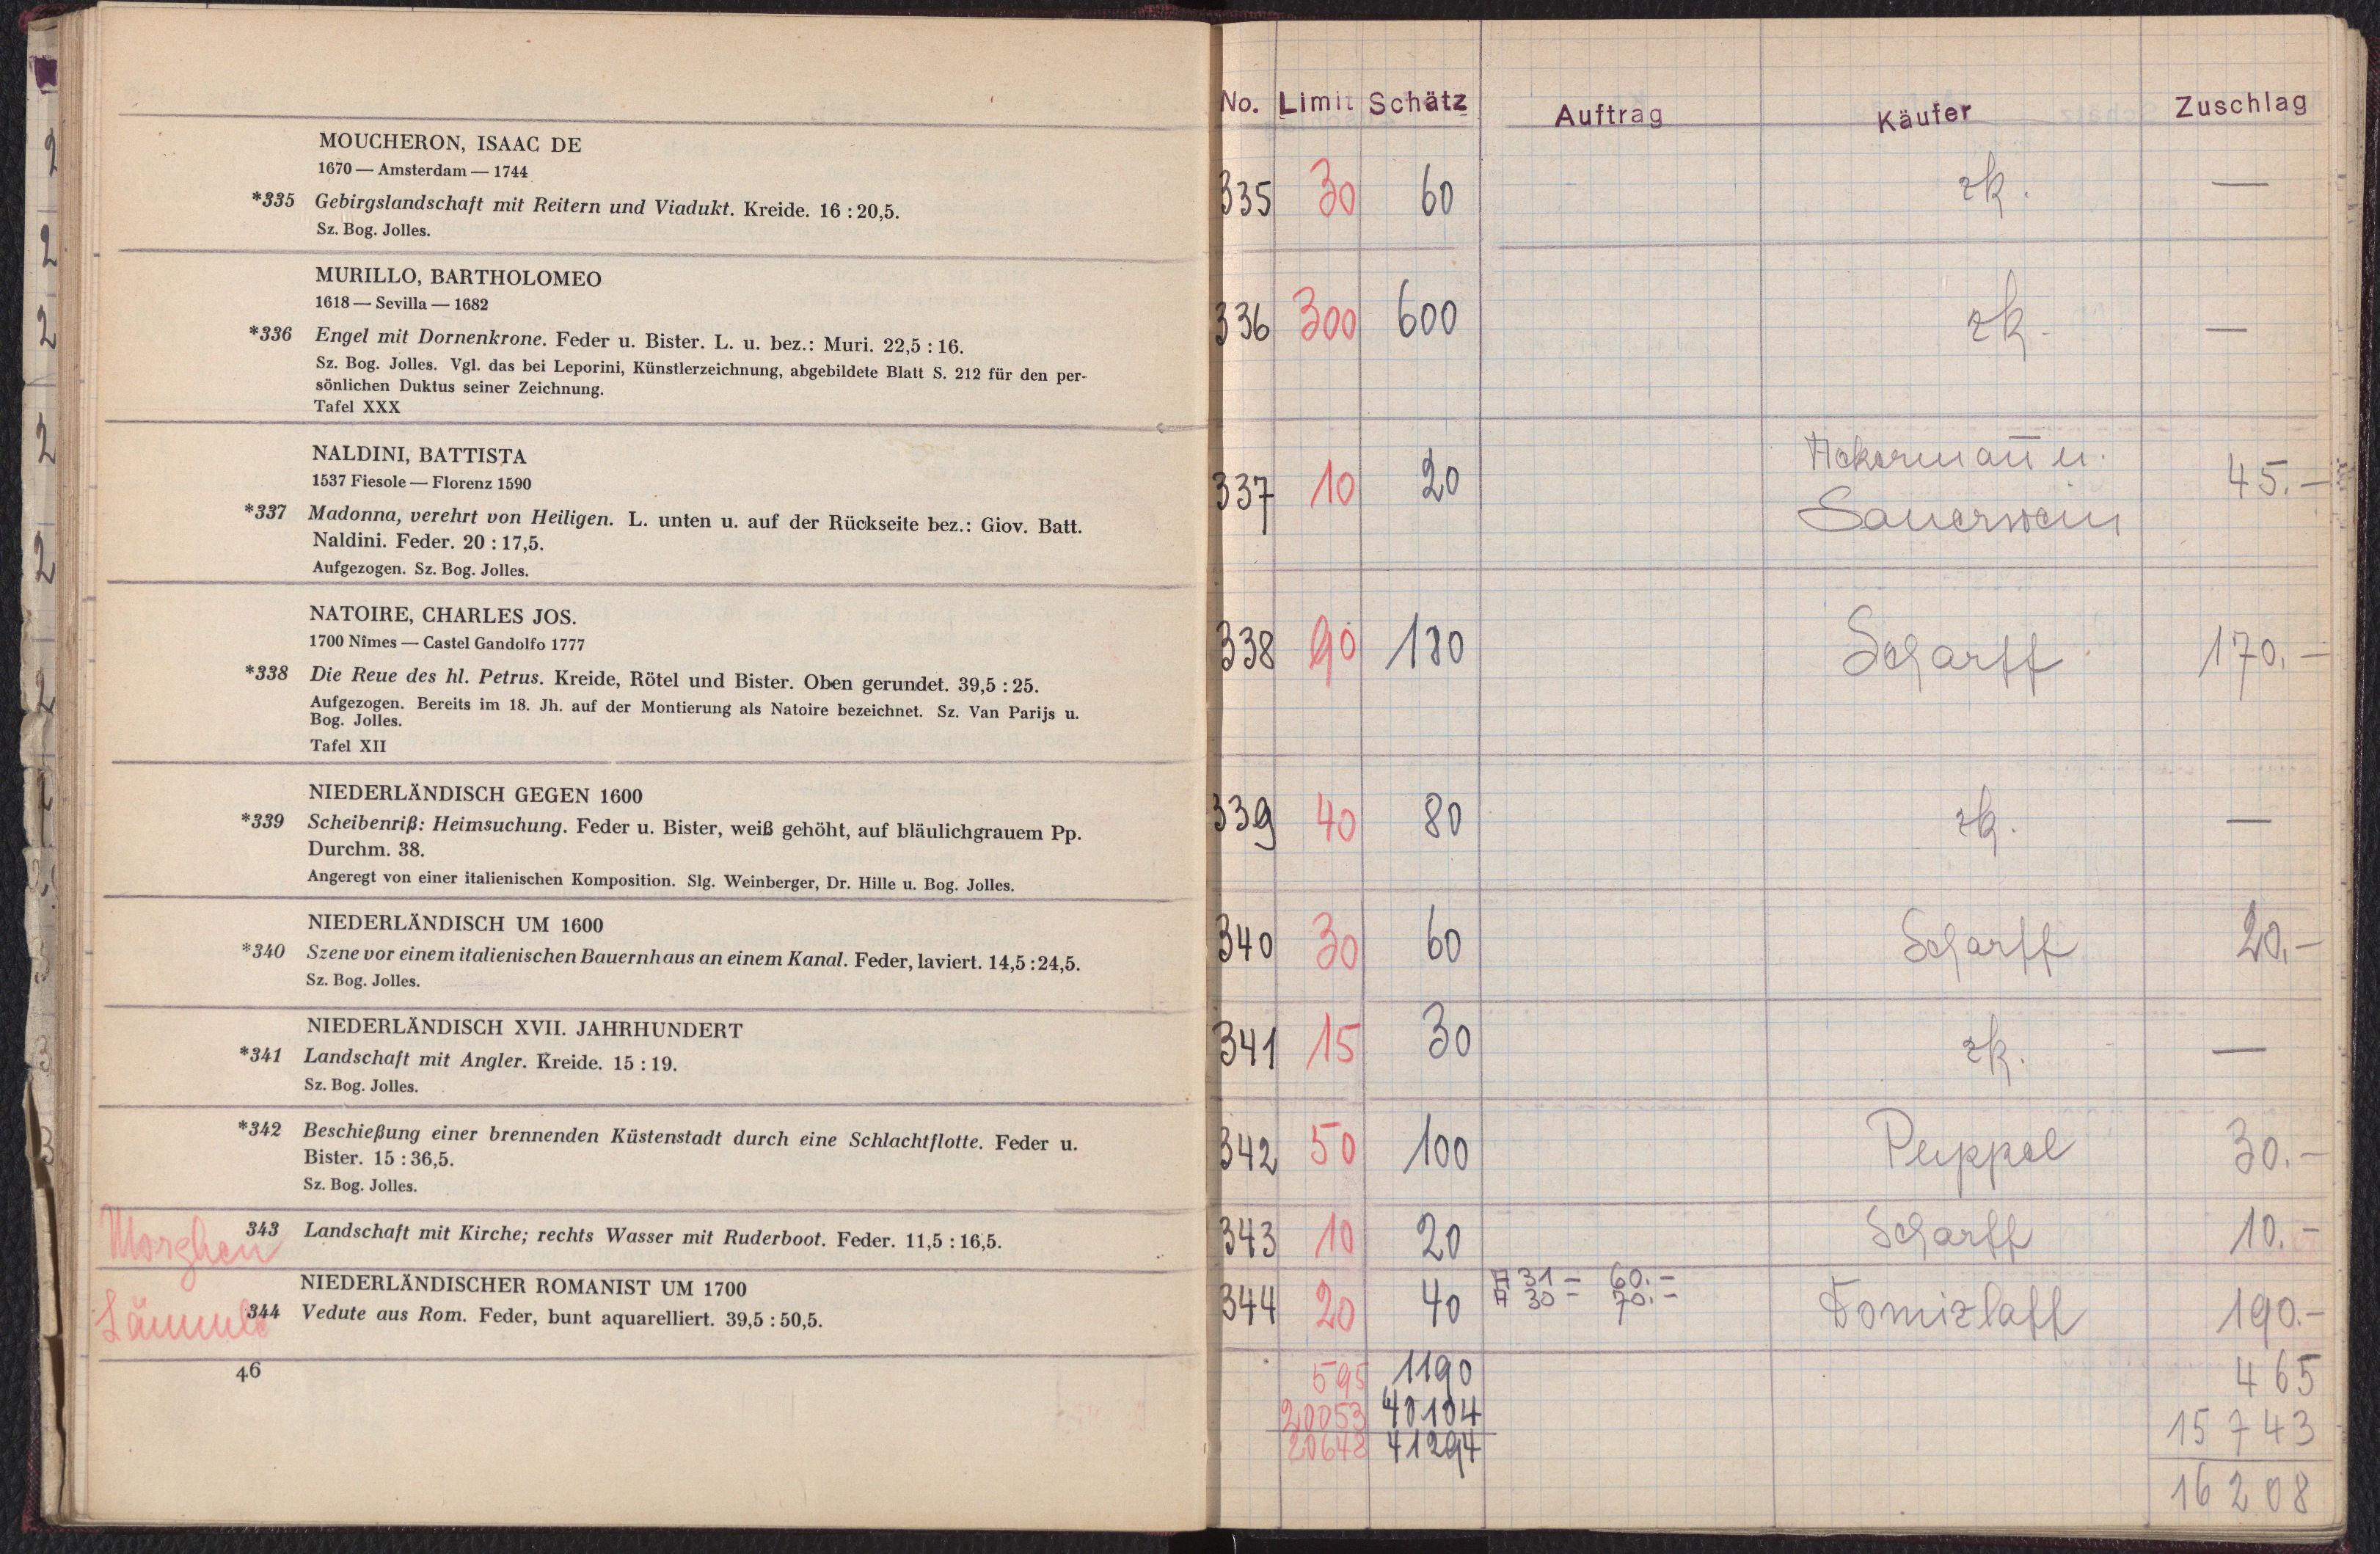 MOUCHERON, ISAAC DE
1670 — Amsterdam — 1744
*335 Gebirgslandschaft mit Reitern und Viadukt. Kreide. 16 : 20,5.
Sz. Bog. Jolles.
MURILLO, BARTHOLOMEO
1618 — Sevilla — 1682
*336 Engel mit Dornenkrone. Feder u. Bister. L. u. bez.: Muri. 22,5 : 16.
Sz. Bog. Jolles. Vgl. das bei Leporini, Künstlerzeichnung, abgebildete Blatt S. 212 für den per-
sönlichen Duktus seiner Zeichnung.
Tafel XXX
NALDINI, BATTISTA
1537 Fiesole — Florenz 1590
*337 Madonna, verehrt von Heiligen. L. unten u. auf der Rückseite bez.: Giov. Batt.
Naldini. Feder. 20 : 17,5.
Aufgezogen. Sz. Bog. Jolles.
NATOIRE, CHARLES JOS.
1700 Nîmes — Castel Gandolfo 1777
*338 Die Reue des hl. Petrus. Kreide, Rötel und Bister. Oben gerundet. 39,5 : 25.
Aufgezogen. Bereits im 18. Jh. auf der Montierung als Natoire bezeichnet. Sz. Van Parijs u.
Bog. Jolles.
Tafel XII
NIEDERLÄNDISCH GEGEN 1600
*339 Scheibenriß: Heimsuchung. Feder u. Bister, weiß gehöht, auf bläulichgrauem Pp.
Durchm. 38.
Angeregt von einer italienischen Komposition. Slg. Weinberger, Dr. Hille u. Bog. Jolles.
NIEDERLÄNDISCH UM 1600
*340 Szene vor einem italienischen Bauernhaus an einem Kanal. Feder, laviert. 14,5 : 24,5.
Sz. Bog. Jolles.
NIEDERLÄNDISCH XVII. JAHRHUNDERT
*341 Landschaft mit Angler. Kreide. 15 : 19.
Sz. Bog. Jolles.
*342 Beschießung einer brennenden Küstenstadt durch eine Schlachtflotte. Feder u.
Bister. 15 : 36,5.
Sz. Bog. Jolles.
Morghen 343 Landschaft mit Kirche; rechts Wasser mit Ruderboot. Feder. 11,5 : 16,5.
NIEDERLÄNDISCHER ROMANIST UM 1700
Lämmle 344 Vedute aus Rom. Feder, bunt aquarelliert. 39,5 : 50,5.
46
No. Limit Schätz Auftrag Käufer Zuschlag
335 30 60 zk. —
336 300 600 zk. —
337 10 20 Ackermann u. 45.—
Sauerwein
338 90 180 Scharff 170.—
339 40 80 zk. —
340 30 60 Scharff 20.—
341 15 30 zk. —
342 50 100 Puppel 30.—
343 10 20 Scharff 10.—
344 20 40 A 31 — 60.— Domizlaff 190.—
A 30 — 70.—
595 1190 465
20053 40104 15743
20648 41294 16208